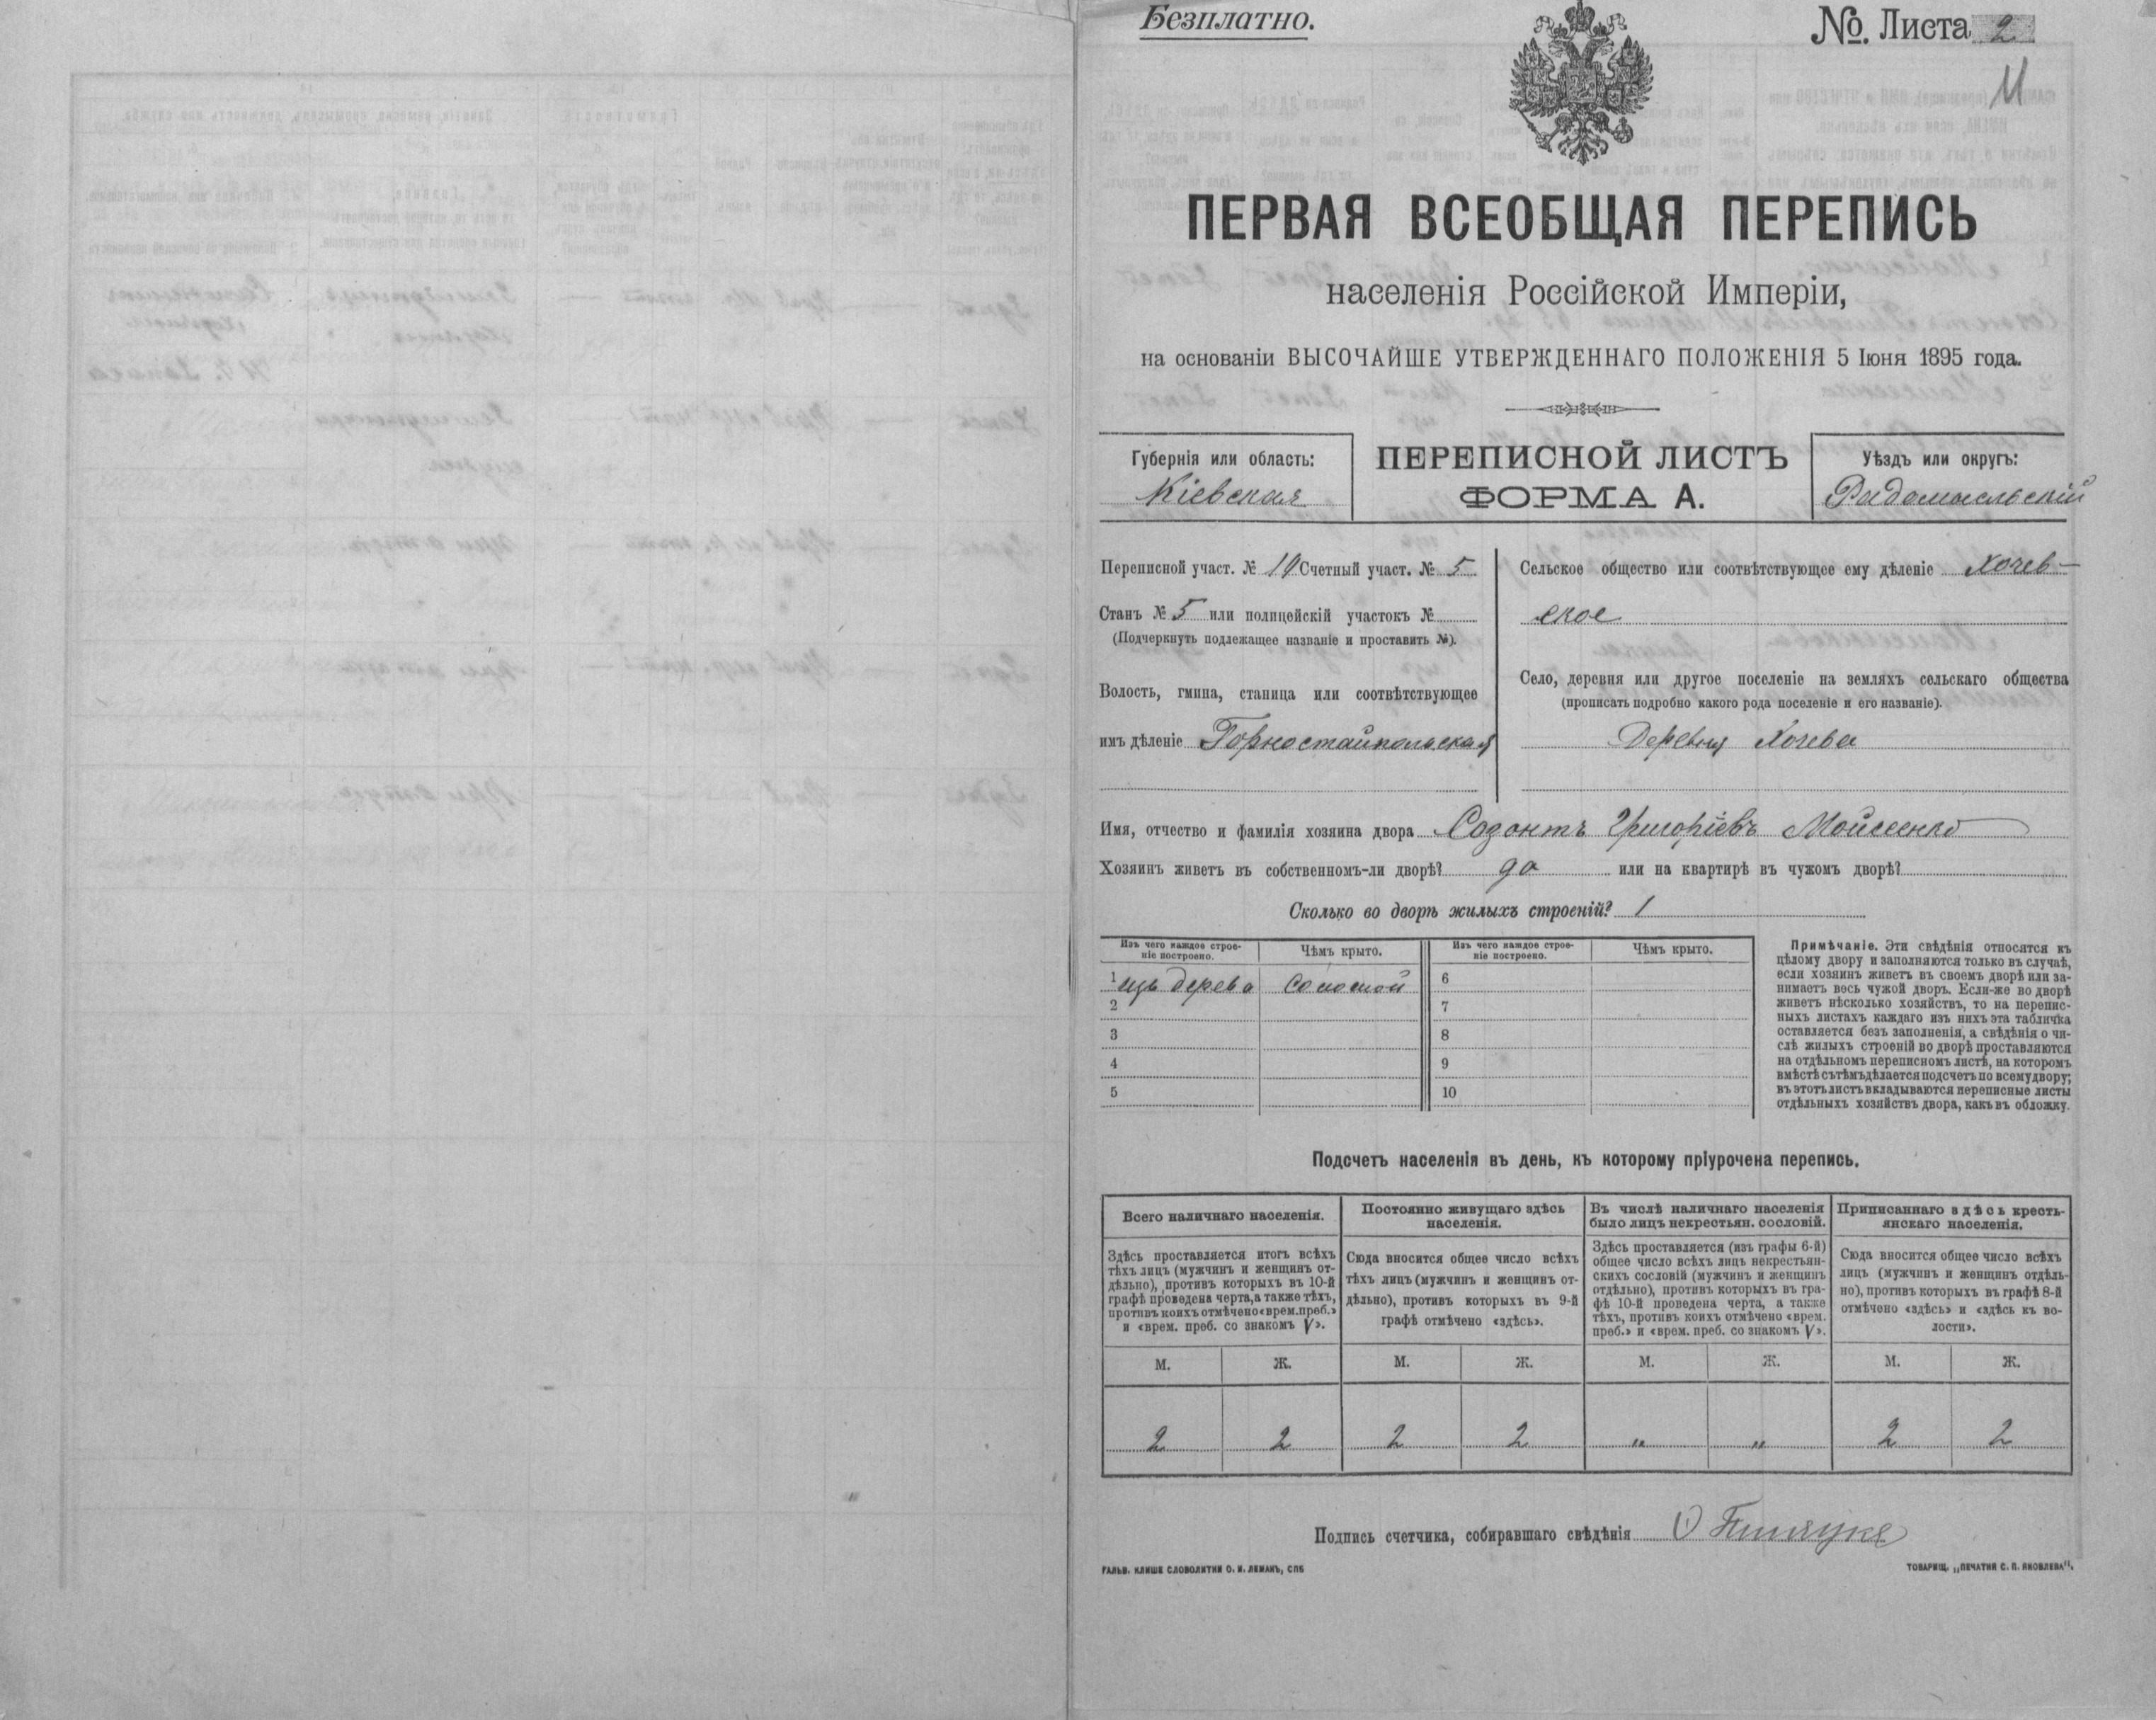 Безплатно.
№. Листа 2
ПЕРВАЯ ВСЕОБЩАЯ ПЕРЕПИСЬ
населенія Россійской Имперіи,
на основаніи ВЫСОЧАЙШЕ УТВЕРЖДЕННАГО ПОЛОЖЕНІЯ 5 Іюня 1895 года.
Губернія или область:
Кіевская
ПЕРЕПИСНОЙ ЛИСТЪ
ФОРМА А.
Уѣздъ или округъ:
Радомысльскій
Переписной участ. № 19 Счетный участ. № 5
Станъ № 5 или полицейскій участокъ №
(Подчеркнуть подлежащее названіе и проставить №).
Волость, гмина, станица или соотвѣтствующее
имъ дѣленіе Горностайпольская
Сельское общество или соотвѣтствующее ему дѣленіе Хочев-
ское
Село, деревня или другое поселеніе на земляхъ сельскаго общества
(прописать подробно какого рода поселеніе и его названіе).
Деревня Хочева
Имя, отчество и фамилія хозяина двора Созонтъ Григоріевъ Мойсеенко
Хозяинъ живетъ въ собственномъ-ли дворѣ? да или на квартирѣ въ чужомъ дворѣ?
Сколько во дворѣ жилыхъ строеній? 1
Изъ чего каждое строе-
ніе построено.
Чѣмъ крыто.
Изъ чего каждое строе-
ніе построено.
Чѣмъ крыто.
1 изъ дерева соломой 6
2 7
3 8
4 9
5 10
Примѣчаніе. Эти свѣдѣнія относятся къ
цѣлому двору и заполняются только въ случаѣ,
если хозяинъ живетъ въ своемъ дворѣ или за-
нимаетъ весь чужой дворъ. Если-же во дворѣ
живетъ нѣсколько хозяйствъ, то на перепис-
ныхъ листахъ каждаго изъ нихъ эта табличка
оставляется безъ заполненія, а свѣдѣнія о чи-
слѣ жилыхъ строеній во дворѣ проставляются
на отдѣльномъ переписномъ листѣ, на которомъ
вмѣстѣ съ тѣмъ дѣлается подсчетъ по всему двору;
въ этотъ листъ вкладываются переписные листы
отдѣльныхъ хозяйствъ двора, какъ въ обложку.
Подсчетъ населенія въ день, къ которому пріурочена перепись.
Всего наличнаго населенія.
Здѣсь проставляется итогъ всѣхъ
тѣхъ лицъ (мужчинъ и женщинъ от-
дѣльно), противъ которыхъ въ 10-й
графѣ проведена черта, а также тѣхъ,
противъ коихъ отмѣчено «врем. преб.»
и «врем. преб. со знакомъ V».
Постоянно живущаго здѣсь
населенія.
Сюда вносится общее число всѣхъ
тѣхъ лицъ (мужчинъ и женщинъ от-
дѣльно), противъ которыхъ въ 9-й
графѣ отмѣчено «здѣсь».
Въ числѣ наличнаго населенія
было лицъ некрестьян. сословій.
Здѣсь проставляется (изъ графы 6-й)
общее число всѣхъ лицъ некрестьян-
скихъ сословій (мужчинъ и женщинъ
отдѣльно), противъ которыхъ въ гра-
фѣ 10-й проведена черта, а также
тѣхъ, противъ коихъ отмѣчено «врем.
преб.» и «врем. преб. со знакомъ V».
Приписаннаго здѣсь кресть-
янскаго населенія.
Сюда вносится общее число всѣхъ
лицъ (мужчинъ и женщинъ отдѣль-
но), противъ которыхъ въ графѣ 8-й
отмѣчено «здѣсь» и «здѣсь къ во-
лости».
М. Ж. М. Ж. М. Ж. М. Ж.
2 2 2 2 „ „ 2 2
Подпись счетчика, собиравшаго свѣдѣнія
ГАЛЬВ. КЛИШЕ СЛОВОЛИТНИ О. И. ЛЕМАНЪ, СПБ
ТОВАРИЩ. „ПЕЧАТНЯ С. П. ЯКОВЛЕВА".